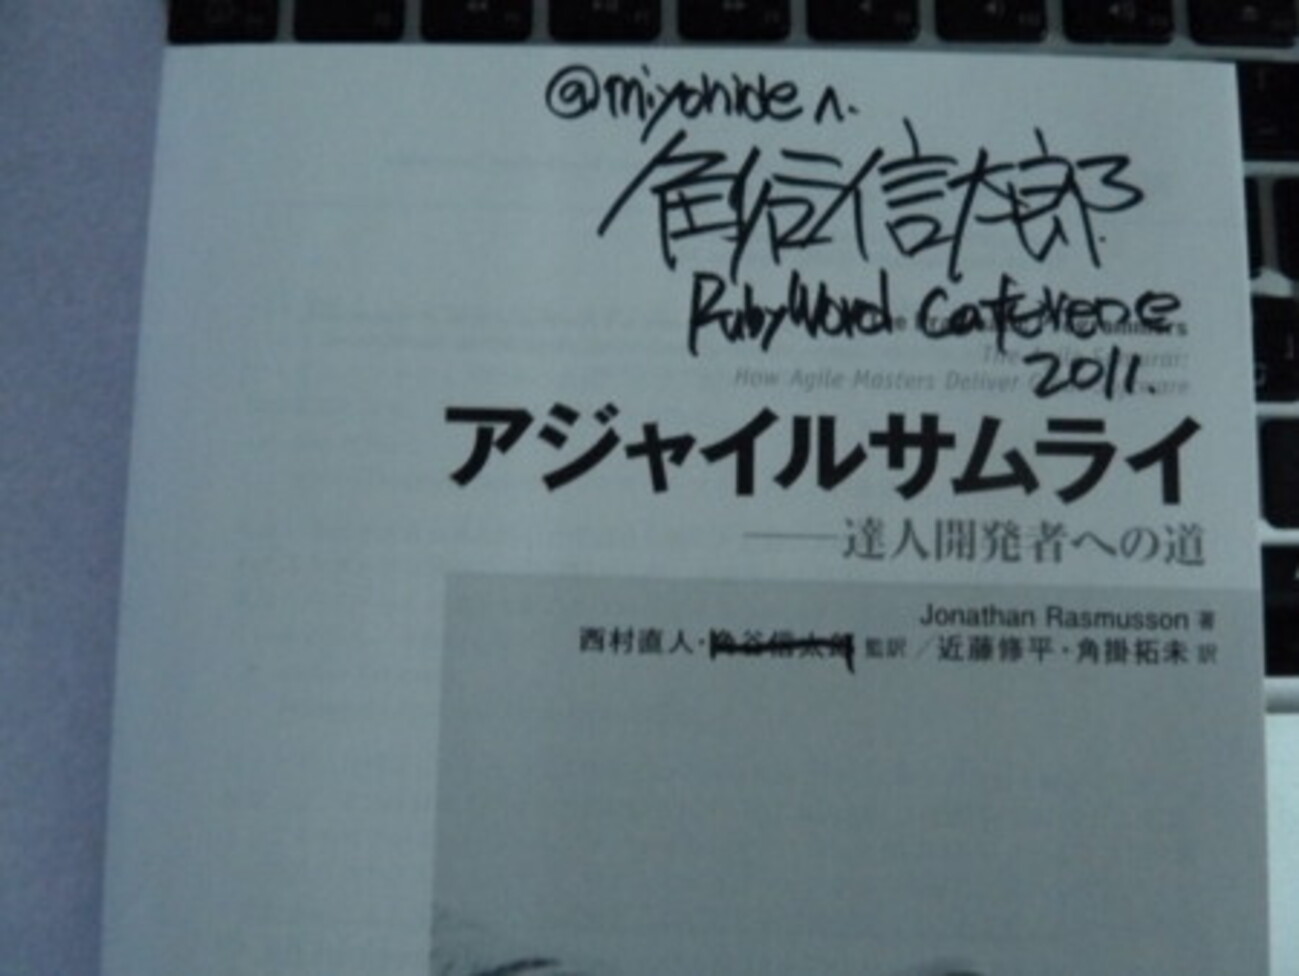 @miyohide へ.
角谷信太郎
RubyWorld Conference
The Pragmatic Programmers
2011.
The Agile Samurai:
How Agile Masters Deliver Great Software
アジャイルサムライ
――達人開発者への道
Jonathan Rasmusson 著
西村直人・角谷信太郎 監訳／近藤修平・角掛拓未 訳